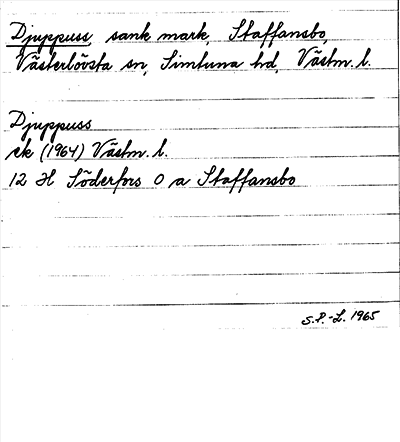 Djuppuss, sank mark, Staffansbo,
Västerlövsta sn, Simtuna hd, Västm. l.
Djuppuss
ek (1964) Västm. l.
12 H Söderfors O a Staffansbo
S.P.-L. 1965